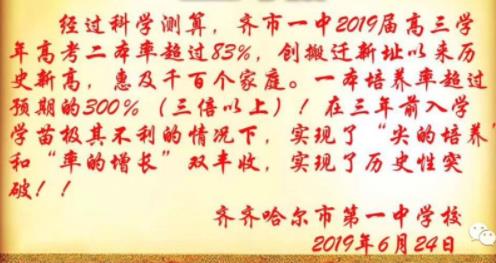 经过科学测算，齐市一中2019届高三学
年高考二本率超过83%，创搬迁新址以来历
史新高，惠及千百个家庭。一本培养率超过
预期的300%（三倍以上）！在三年前入学
学苗极其不利的情况下，实现了“尖的培养”
和“率的增长”双丰收，实现了历史性突
破！！
齐齐哈尔市第一中学校
2019年6月24日